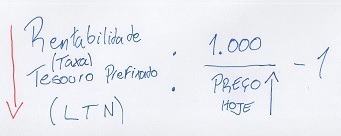 Rentabilidade
(Taxa)
Tesouro Prefixado
(LTN)
:
1.000
PREÇO
HOJE
- 1